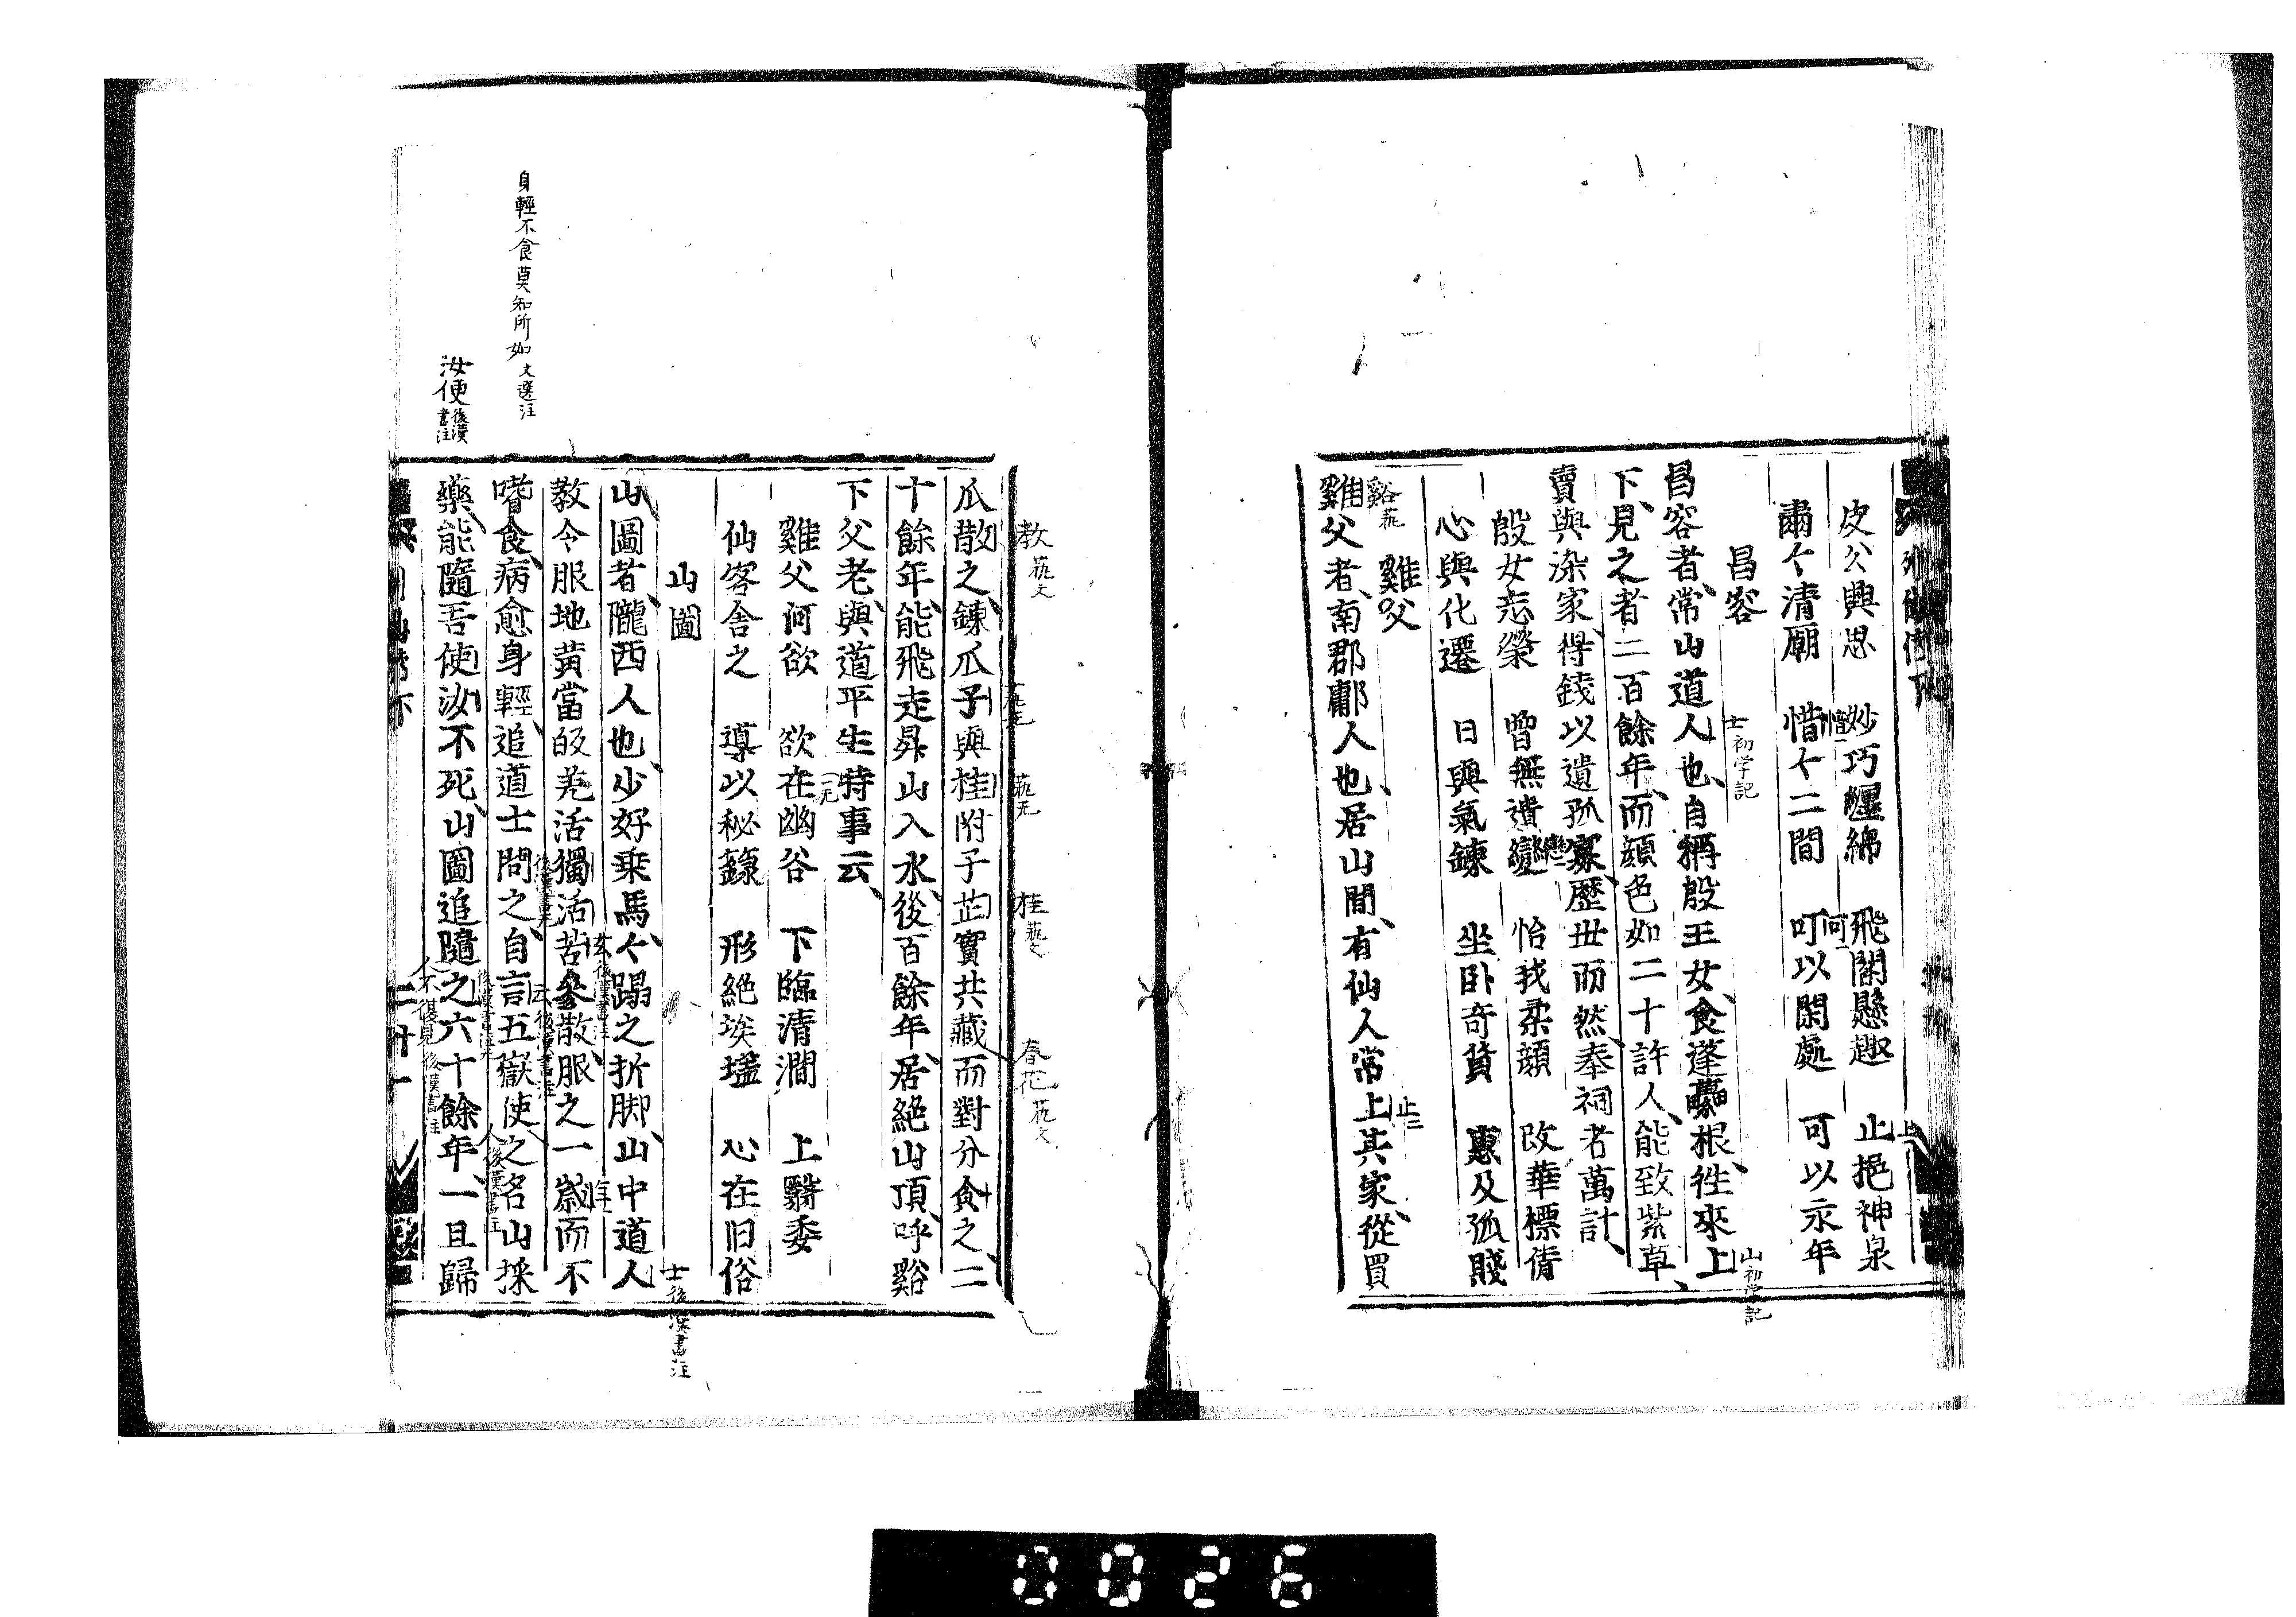 皮公興思 妙巧纏綿 飛閣懸趣 止挹神泉
肅々清廟 惜々二間 叮以閑處 可以永年
昌容
昌容者常山道人也自稱殷王女食蓬虆根徃來上
下見之者二百餘年而顔色如二十許人能致紫草
賣與染家得錢以遺孤寡歷世而然奉祠者萬計
殷女忘榮 曾無遺變 怡我柔顔 改華標倩
心與化遷 日與氣鍊 坐卧奇貨 惠及孤賤
雞父
雞父者南郡鄘人也居山間有仙人常止其家從買
瓜散之錬瓜子與桂附子芷實共藏而對分食之二
十餘年能飛走昇山入水後百餘年居絶山頂呼谿
下父老與道平生特事云
雞父何欲 欲在幽谷 下臨清澗 上翳委
仙客舍之 導以秘籙 形絶埃壒 心在旧俗
山圖
山圖者隴西人也少好乗馬々蹋之折脚山中道人
教令服地黄當皈羌活獨活苦參散服之一歳而不
嗜食病愈身輕追道士問之自言五嶽使之名山採
藥能隨吾使汝不死山圖追隨之六十餘年一旦歸
身輕不食莫知所如 文選注
汝便 後漢書注
士初学記
山初学記
士後漢書注
人不復見 後漢書注
二 廿一
0026